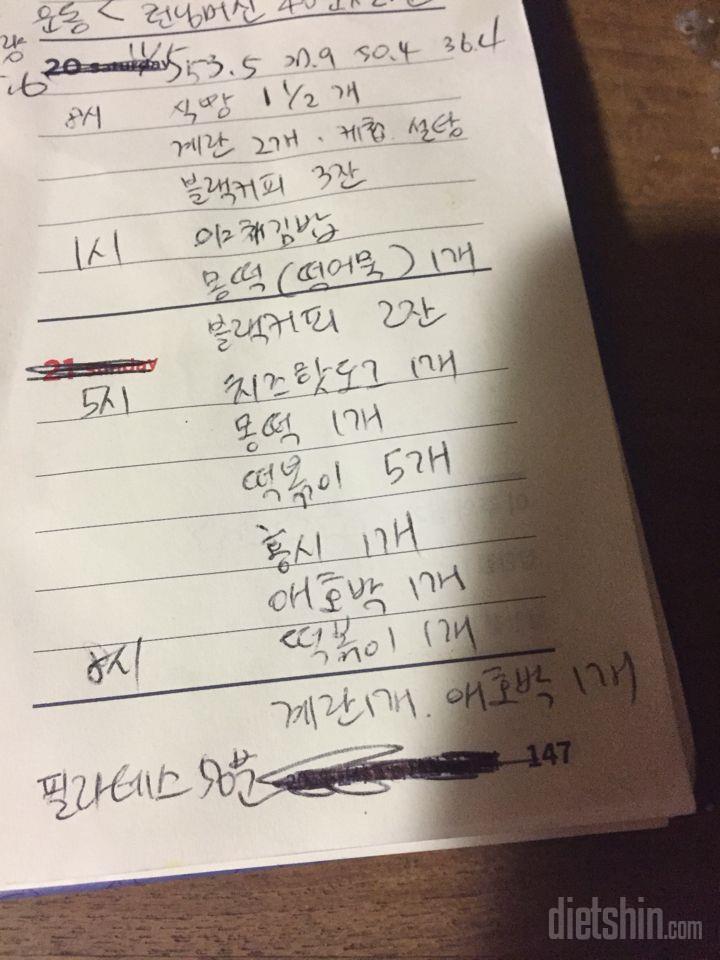 운동 < 런닝머신 40
20 saturday 11/5 53.5 20.9 50.4 36.4
8시 식빵 1 1/2 개
계란 2개 · 케찹 설탕
블랙커피 3잔
1시 야채김밥
몽떡 (떵어묵) 1개
블랙커피 2잔
21 sunday
5시 치즈핫도그 1개
몽떡 1개
떡볶이 5개
홍시 1개
애호박 1개
8시 떡볶이 1개
계란1개. 애호박 1개
필라테스 50분 147
dietshin.com